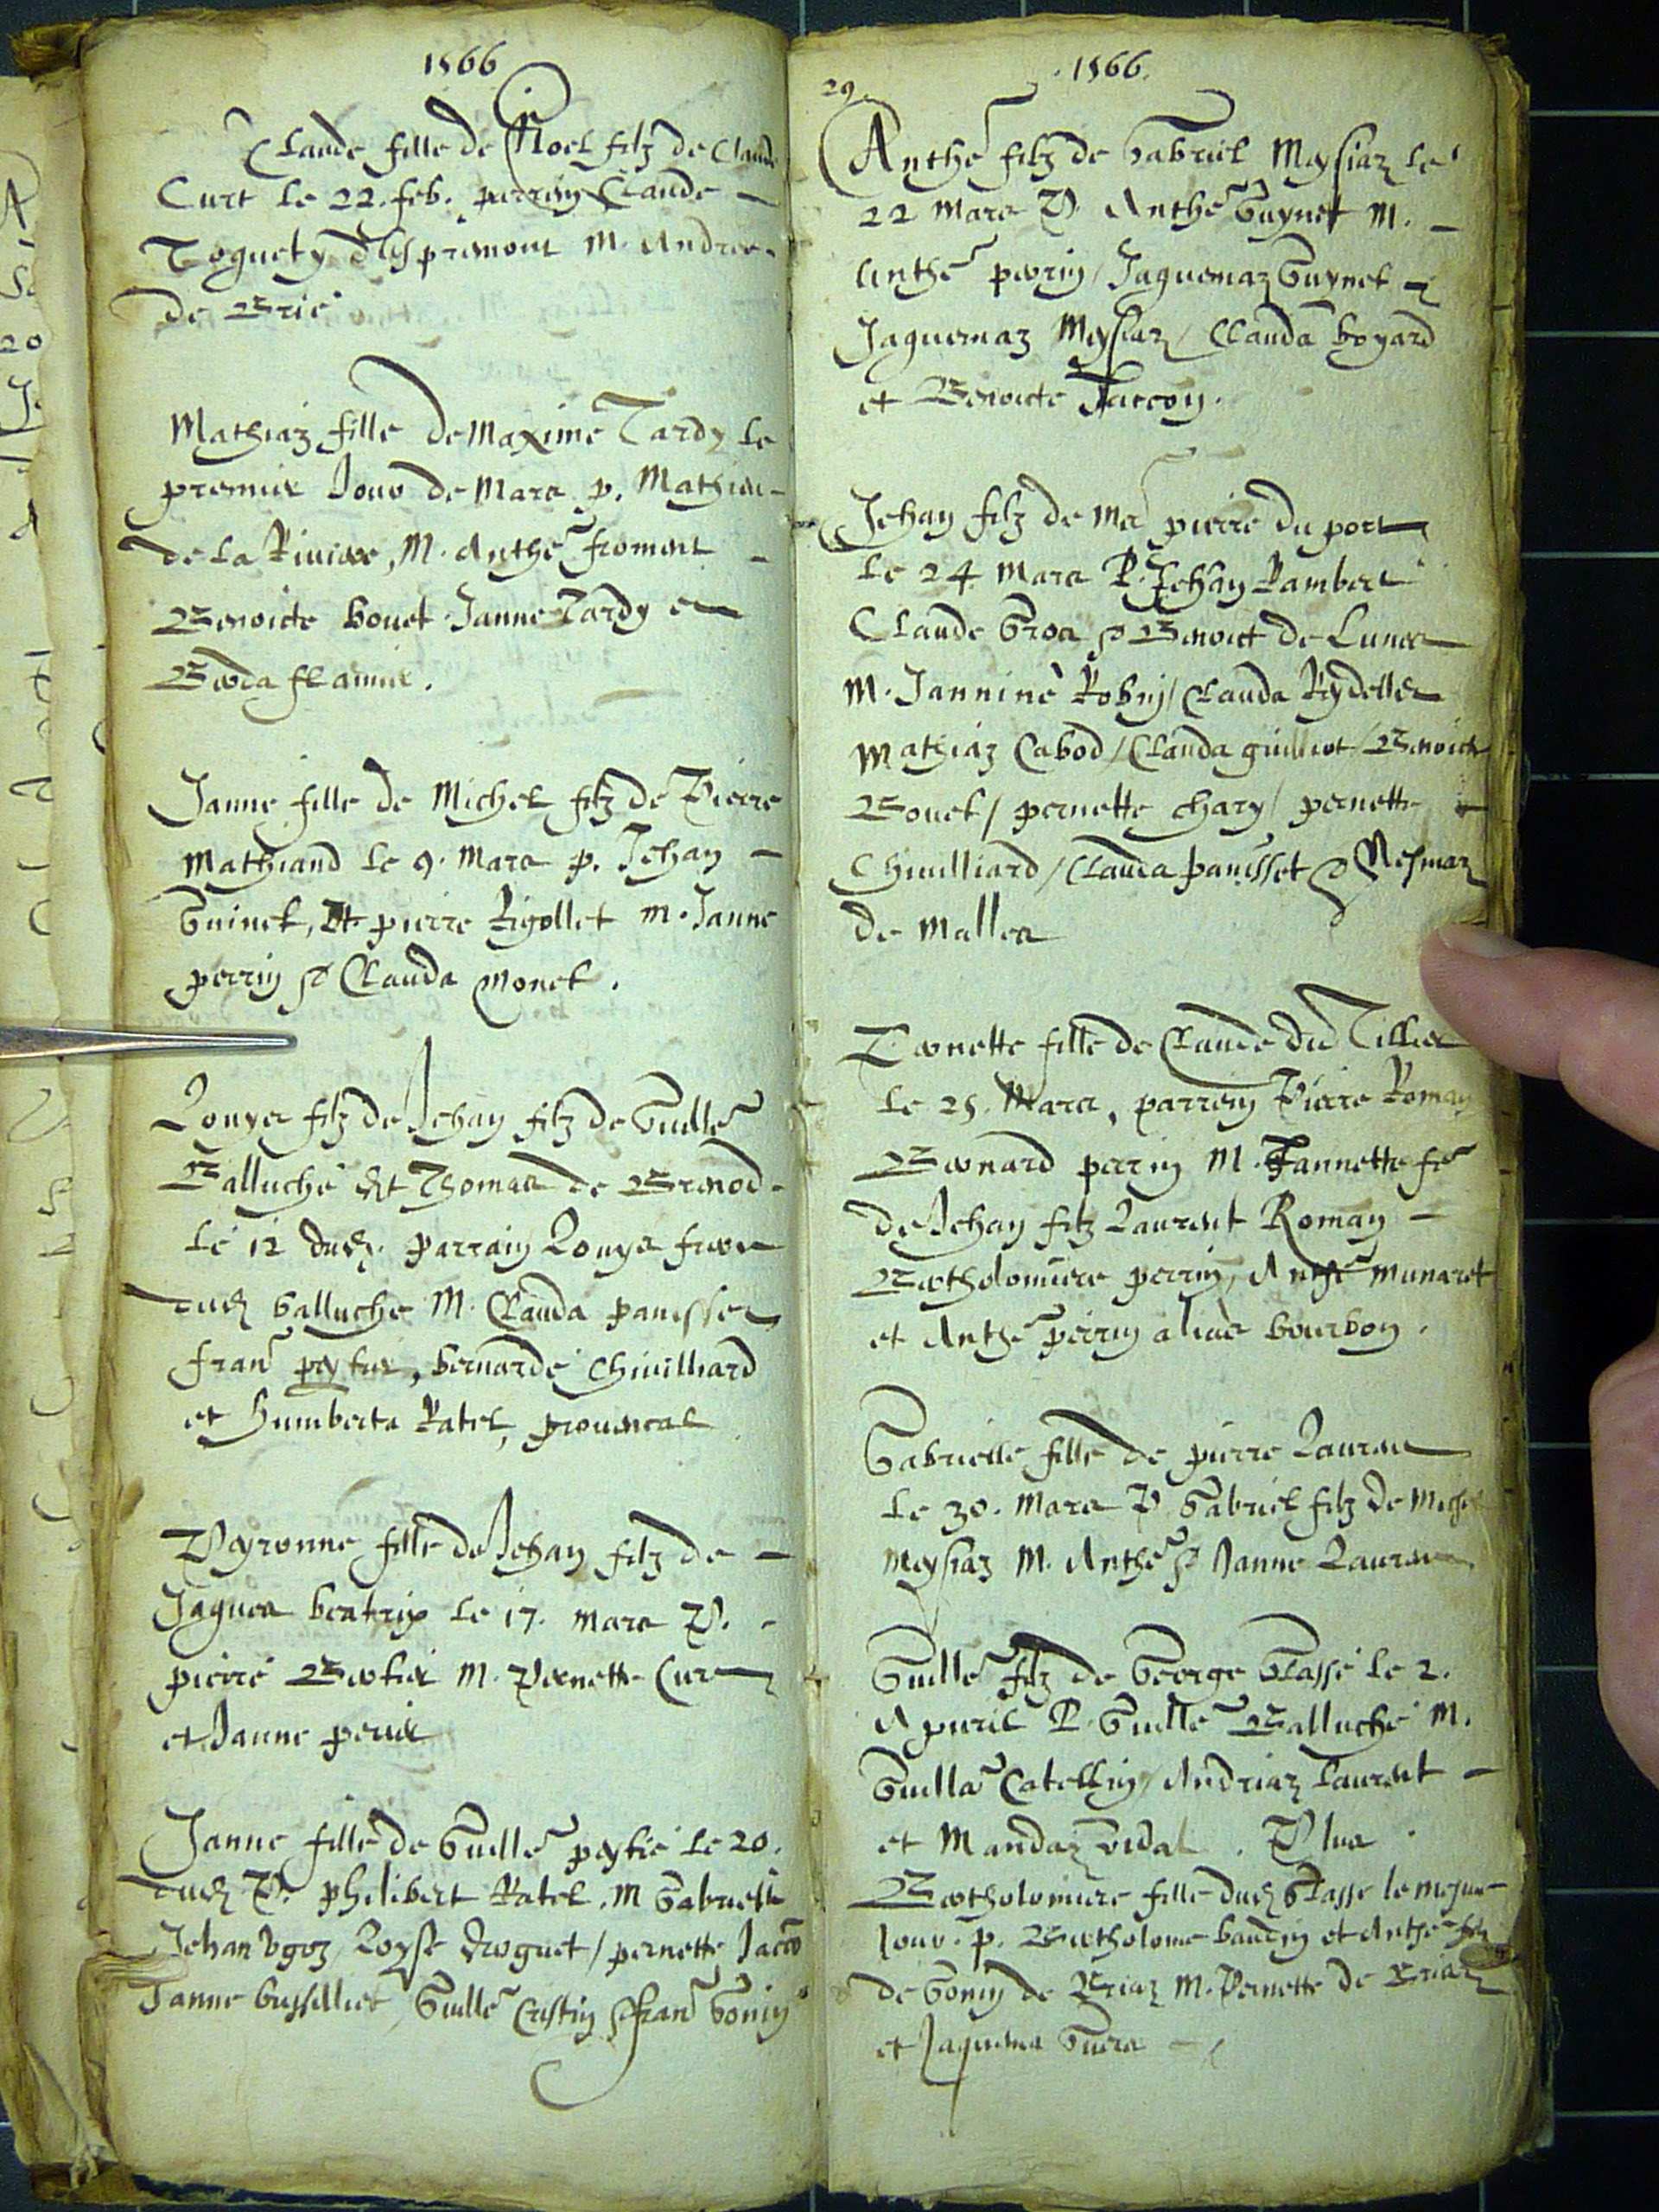 1566
Claude fille de Noel filz de Claude
Curt le 22. feb. parrin Claude
Toguet M. Andree
de Brie
Mathiaz fille de Maxime Tardy le
premier Jour de Mars p. Mathieu
de la Riviere, M. Anthe froment
Benoicte bouet Janne Tardy et
Janne fille de Michel filz de Pierre
Mathiand le 9. Mars p. Jehan
Guinet, Et pierre Rigollet M. Janne
perrin & Clauda Monet.
Louys filz de Jehan filz de Guille
Balluche dit Thomas de Brenod
le 12 dud. parrain Louys frere
dud balluche M. Clauda panisset
fran peytier, bernarde Chivilliard
et Humberta Ratel, provencal
Peyronne fille de Jehan filz de
Jaques beatrix le 17. Mars P.
pierre Bertier M. Pernette Curt
et Janne perier
Janne fille de Guille peytie le 20.
dud P. philibert Ratel. M Gabrielle
Jehan Ugoz, Loyse droguet / pernette
Janne Guille Cristin & fran Gonin
29.
1566.
Anthe filz de Gabriel Meysiaz le
22 Mars P. Anthe Guynet M.
Anthe perrin / Jaquemaz Guynet
Jaquemaz Meysiaz / Clauda boyard
et Benoicte Faccon.
Jehan filz de Me pierre du port
le 24 Mars P. Jehan Rambert
Claude Gros & Benoict de Lunes
M. Jannine Robin / Clauda Rydellet
Mathiaz Cabod / Clauda guilliot / Benoicte
Bouet / pernette chary / pernette
Chivilliard / Clauda panisset & Nesmaz
de Malles
Pernette fille de Claude du Tillier
le 25. Mars, parrein Pierre Roman
Bernard perrin M. Jannette fe
de Jehan filz Laurent Roman
Bertholomiere perrin, Anthe munaret
et Anthe perrin alias bourbon.
Gabrielle fille de pierre Laurent
le 30. Mars P Gabriel filz de Michel
Meysiaz M. Anthe & Janne Laurent
Guille filz de George Classe le 2.
Apvril P. Guille Balluche M.
Guilla Catellin / Andriaz Laurent
et Mandaz vidal. Plus
Bertholomiere fille dud Classe le mesme
Jour. p. Bertholome baudin et Anthe filz
de Gonin de Briaz M. Pernette de Briaz
et Jaquema Guera